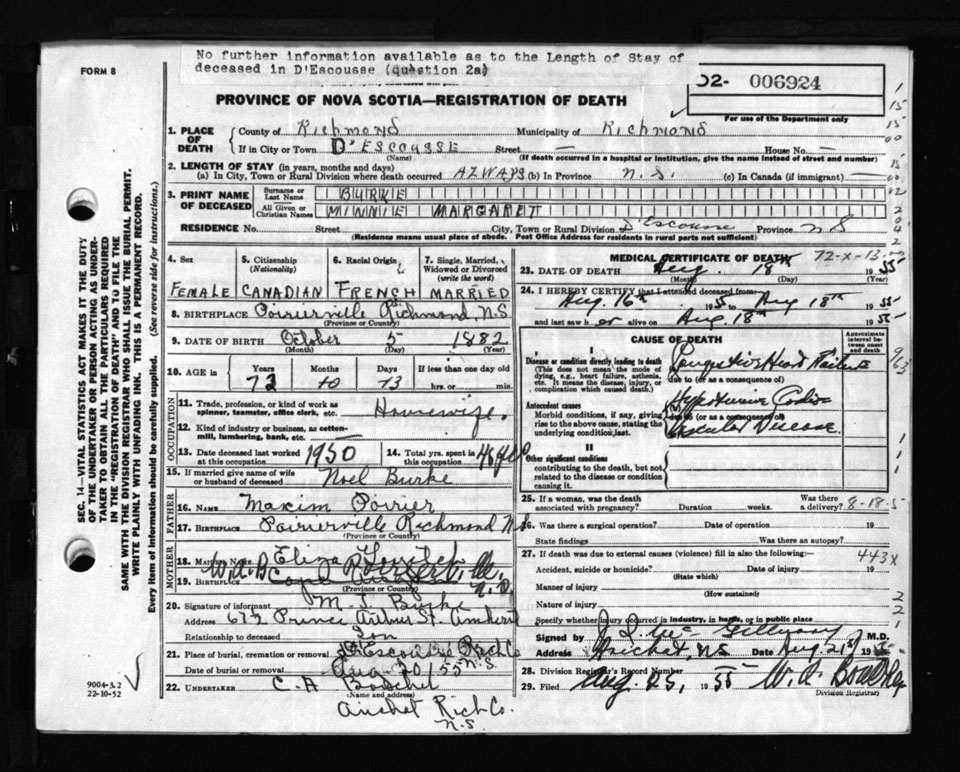 No further information available as to the Length of Stay of
deceased in D'Escousse (question 2a)
FORM 8
02- 006924
For use of the Department only
PROVINCE OF NOVA SCOTIA—REGISTRATION OF DEATH
1. PLACE OF DEATH
County of Richmond Municipality of Richmond
If in City or Town D'Escousse Street — House No. —
(Name) (If death occurred in a hospital or institution, give the name instead of street and number)
2. LENGTH OF STAY (in years, months and days)
(a) In City, Town or Rural Division where death occurred ALWAYS (b) In Province N.S. (c) In Canada (if immigrant) —
3. PRINT NAME OF DECEASED
Surname or Last Name BURKE
All Given or Christian Names MINNIE MARGARET
RESIDENCE No. Street City, Town or Rural Division D'Escousse Province N S
(Residence means usual place of abode. Post Office Address for residents in rural parts not sufficient)
4. Sex
FEMALE
5. Citizenship
(Nationality)
CANADIAN
6. Racial Origin
FRENCH
7. Single, Married, Widowed or Divorced
(write the word)
MARRIED
8. BIRTHPLACE Poirierville Richmond, N.S.
(Province or Country)
9. DATE OF BIRTH October 5 1882
(Month) (Day) (Year)
10. AGE in
Years Months Days If less than one day old
72 10 13 hrs. or min.
OCCUPATION
11. Trade, profession, or kind of work as
spinner, teamster, office clerk, etc. Housewife.
12. Kind of industry or business, as cotten-
mill, lumbering, bank, etc. —
13. Date deceased last worked
at this occupation 1950
14. Total yrs. spent in
this occupation 48 yrs
15. If married give name of wife
or husband of deceased Noel Burke
FATHER
16. NAME Maxim Poirier
17. BIRTHPLACE Poirierville Richmond N.S.
(Province or Country)
MOTHER
18. MAIDEN NAME Eliza
19. BIRTHPLACE W.A.B.
(Province or Country) N.S.
20. Signature of informant M. J. Burke
Address 67½ Prince Arthur St. Amherst
Relationship to deceased Son
21. Place of burial, cremation or removal D'Escousse Rich Co
N.S.
Date of burial or removal Aug 20/55
22. UNDERTAKER C. A Boucher
(Name and address)
Arichat Rich Co.
N.S.
MEDICAL CERTIFICATE OF DEATH
72-X-13
23. DATE OF DEATH Aug. 18th 1955
(Month) (Day) (Year)
24. I HEREBY CERTIFY that I attended deceased from
Aug. 16th 1955 to Aug 18th 1955
and last saw her alive on Aug. 18th 1955
CAUSE OF DEATH
Approximate interval between onset and death
I
Disease or condition directly leading to death
(This does not mean the mode of
dying, e.g., heart failure, asthenia,
etc. It means the disease, injury, or
complication which caused death.)
Congestive Heart Failure
due to (or as a consequence of)
Antecedent causes
Morbid conditions, if any, giving
rise to the above cause, stating the
underlying condition, last.
Hypertensive Cardio
due to (or as a consequence of)
Vascular Disease.
II
Other significant conditions
contributing to the death, but not
related to the disease or condition
causing it.
25. If a woman, was the death
associated with pregnancy? Duration weeks. Was there a delivery? 8-18-5
26. Was there a surgical operation? Date of operation 19
State findings Was there an autopsy?
27. If death was due to external causes (violence) fill in also the following:— 443X
Accident, suicide or homicide? Date of injury 19
(State which)
Manner of injury
(How sustained)
Nature of injury
Specify whether injury occurred in industry, in home, or in public place
Signed by M.D.
Address Arichat, N.S. Date Aug. 21st 1955
28. Division Registrar's Record Number
29. Filed Aug. 25, 1955
Division Registrar)
SEC. 14—VITAL STATISTICS ACT MAKES IT THE DUTY
OF THE UNDERTAKER OR PERSON ACTING AS UNDER-
TAKER TO OBTAIN ALL THE PARTICULARS REQUIRED
IN THE "REGISTRATION OF DEATH" AND TO FILE THE
SAME WITH THE DIVISION REGISTRAR WHO SHALL ISSUE THE BURIAL PERMIT.
WRITE PLAINLY WITH UNFADING INK. THIS IS A PERMANENT RECORD.
Every item of information should be carefully supplied. (See reverse side for instructions.)
9004-3.2
22-10-52